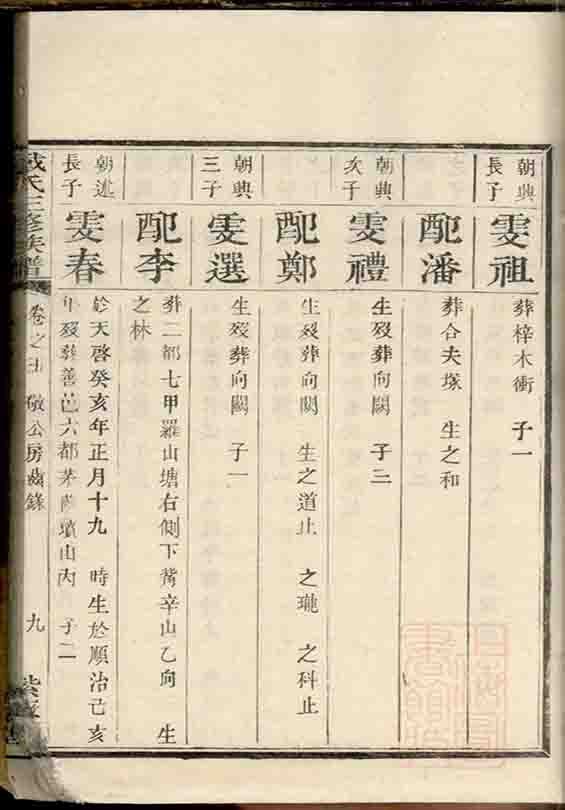 朝興長子
雯祖
葬梓木衝 子一
配潘
葬合夫塚 生之和
朝興次子
雯禮
生歿葬向闕 子二
配鄭
生歿葬向闕 生之道止 之瓏 之科止
朝興三子
雯選
生歿葬向闕 子一
配李
葬二都七甲羅山塘右側下觜辛山乙向 生
之林
朝述長子
雯春
於天啓癸亥年正月十九 時生於順治己亥
年歿葬善邑六都茅 山內 子二
氏三修族譜
卷之 敬公房齒錄
九
紫